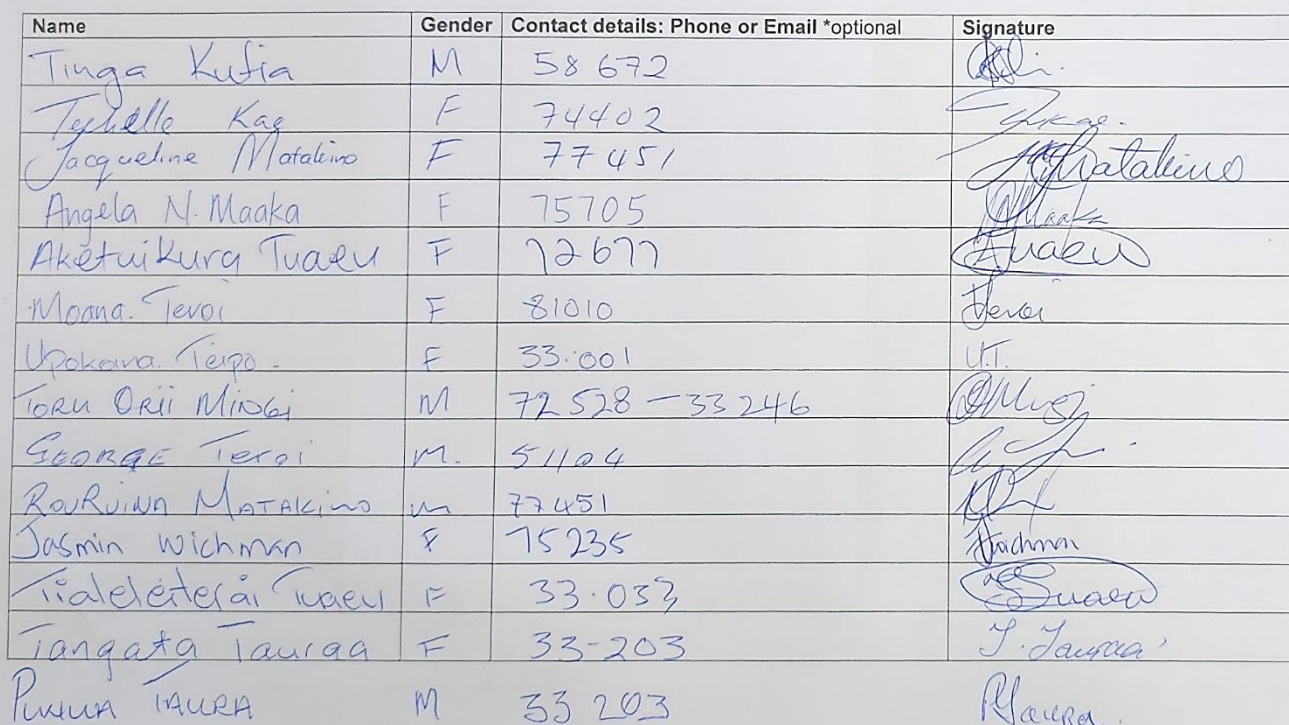 Name Gender Contact details: Phone or Email *optional Signature
Tinga Kufia M 58 672
Kae F 74402
Jacqueline Matakino F 77451 Matakino
Angela N. Maaka F 75705 Maaka
Aketuikura Tuaeu F 72677 Tuaeu
Moana Tevoi F 81010 Tevoi
Upokoina Teipo F 33.001 U.T.
TORU ORII MINGI M 72 528 - 33 246
GEORGE Teroi M. 51104
MATAKINO m 77451
Jasmin Wichman F 75235 Wichman
Tuaeu F 33.033 Tuaeu
Tangata Tauraa F 33-203 T. Tauraa
TAURA M 33 203